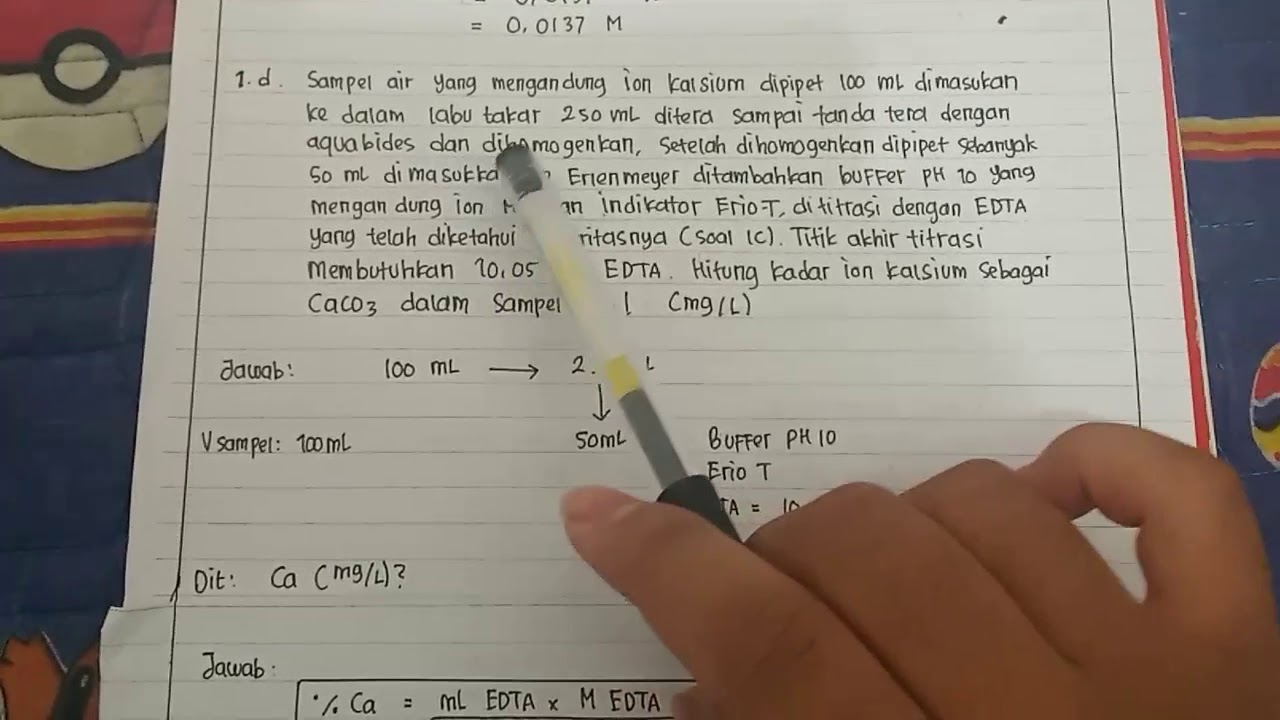 = 0,0137 M
1.d. Sampel air yang mengandung ion kalsium dipipet 100 mL dimasukan
ke dalam labu takar 250 mL ditera sampai tanda tera dengan
aquabides dan dihomogenkan, setelah dihomogenkan dipipet sebanyak
50 mL Erlenmeyer ditambahkan buffer PH 10 yang
mengandung ion indikator Erio T, dititrasi dengan EDTA
yang telah diketahui (soal 1c). Titik akhir titrasi
Membutuhkan 10,05 EDTA. Hitung kadar ion kalsium sebagai
CaCO3 dalam Sampel (mg/L)
Jawab: 100 mL → 2
↓
V sampel: 100 mL 50mL Buffer PH 10
Erio T
= 10
Dit: Ca (mg/L)?
Jawab:
% Ca = mL EDTA x M EDTA